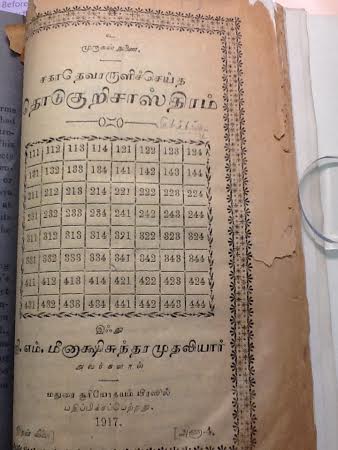 Before
உ
முருகன் துணை.
சகாதேவரருளிச்செய்த
தொடுகுறிசாஸ்திரம்
111 112 113 114 121 122 123 124
131 132 133 134 141 142 143 144
211 212 213 214 221 222 223 224
231 232 233 234 241 242 243 244
311 312 313 314 321 322 323 324
331 332 333 334 341 342 343 344
411 412 413 414 421 422 423 424
431 432 433 434 441 442 443 444
இஃது
எம். மீனாக்ஷிசுந்தரமுதலியார்
அவர்களால்
மதுரை சூரியோதயம் பிரஸில்
பதிப்பிக்கப்பெற்றது.
1917.
[அணா-4.